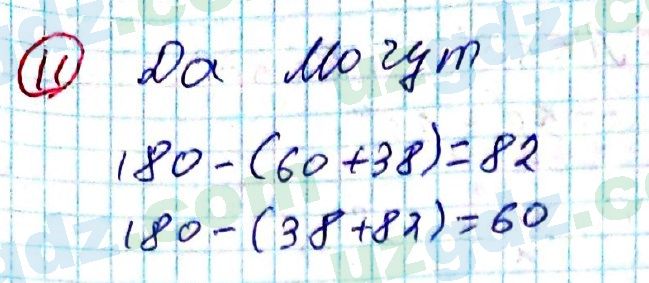 11 Да могут
180-(60+38)=82
180-(38+82)=60